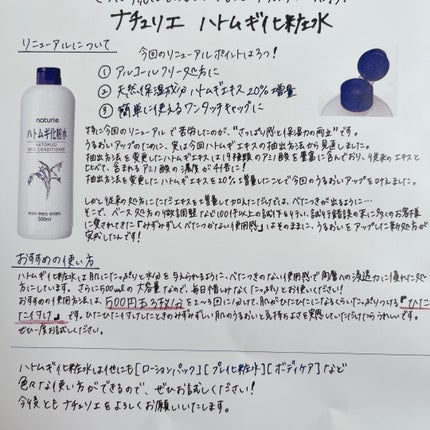 ナチュリエ ハトムギ化粧水
リニューアルについて
今回のリニューアルポイントは3つ!
① アルコールフリー処方に
② 天然保湿成分 ハトムギエキス 20% 増量
③ 簡単に使えるワンタッチキャップに
naturie
ハトムギ化粧水
HATOMUGI
SKIN CONDITIONER
500ml
特に今回のリニューアルで苦労したのが、"さっぱり感と保湿力の両立"です。
うるおいアップのために、実は今回ハトムギエキスの抽出方法から見直しました。
抽出方法を変更したハトムギエキスは19種類のアミノ酸を豊富に含んでおり、従来のエキスと
比べて、含まれるアミノ酸の濃度が
抽出方法を変更したハトムギエキスを20%増量したことで今回のうるおいアップを叶えました。
しかし従来処方にただエキスを増量して加えただけでは、べたつきが出るように…
そこで、ベース処方の微調整など100件以上の試作を行い、試行錯誤の末に多くのお客様
に愛されてきた『みずみずしくべたつかない使用感』はそのままに、うるおいをアップした新処方が
完成したんです!
おすすめの使い方
ハトムギ化粧水は肌にたっぷりと水分を与えられるように、べたつきのない使用感で角層への浸透力に優れた処
方にしています。さらに500mlの大容量なので、毎日惜しみなくたっぷりとお使いください!
おすすめの使用方法は、500円玉3枚分を2~3回に分けて、肌がひたひたになるくらいたっぷりつける『ひた
だけ』です。ひたひたづけしたときのみずみずしい肌のうるおいと気持ちよさを実感していただけたらうれしいです。
ぜひ一度お試しください。
ハトムギ化粧水は他にも[ローションパック][プレ化粧水][ボディケア]など
色々な使い方ができるので、ぜひお試しください!
今後ともナチュリエをよろしくお願いいたします。